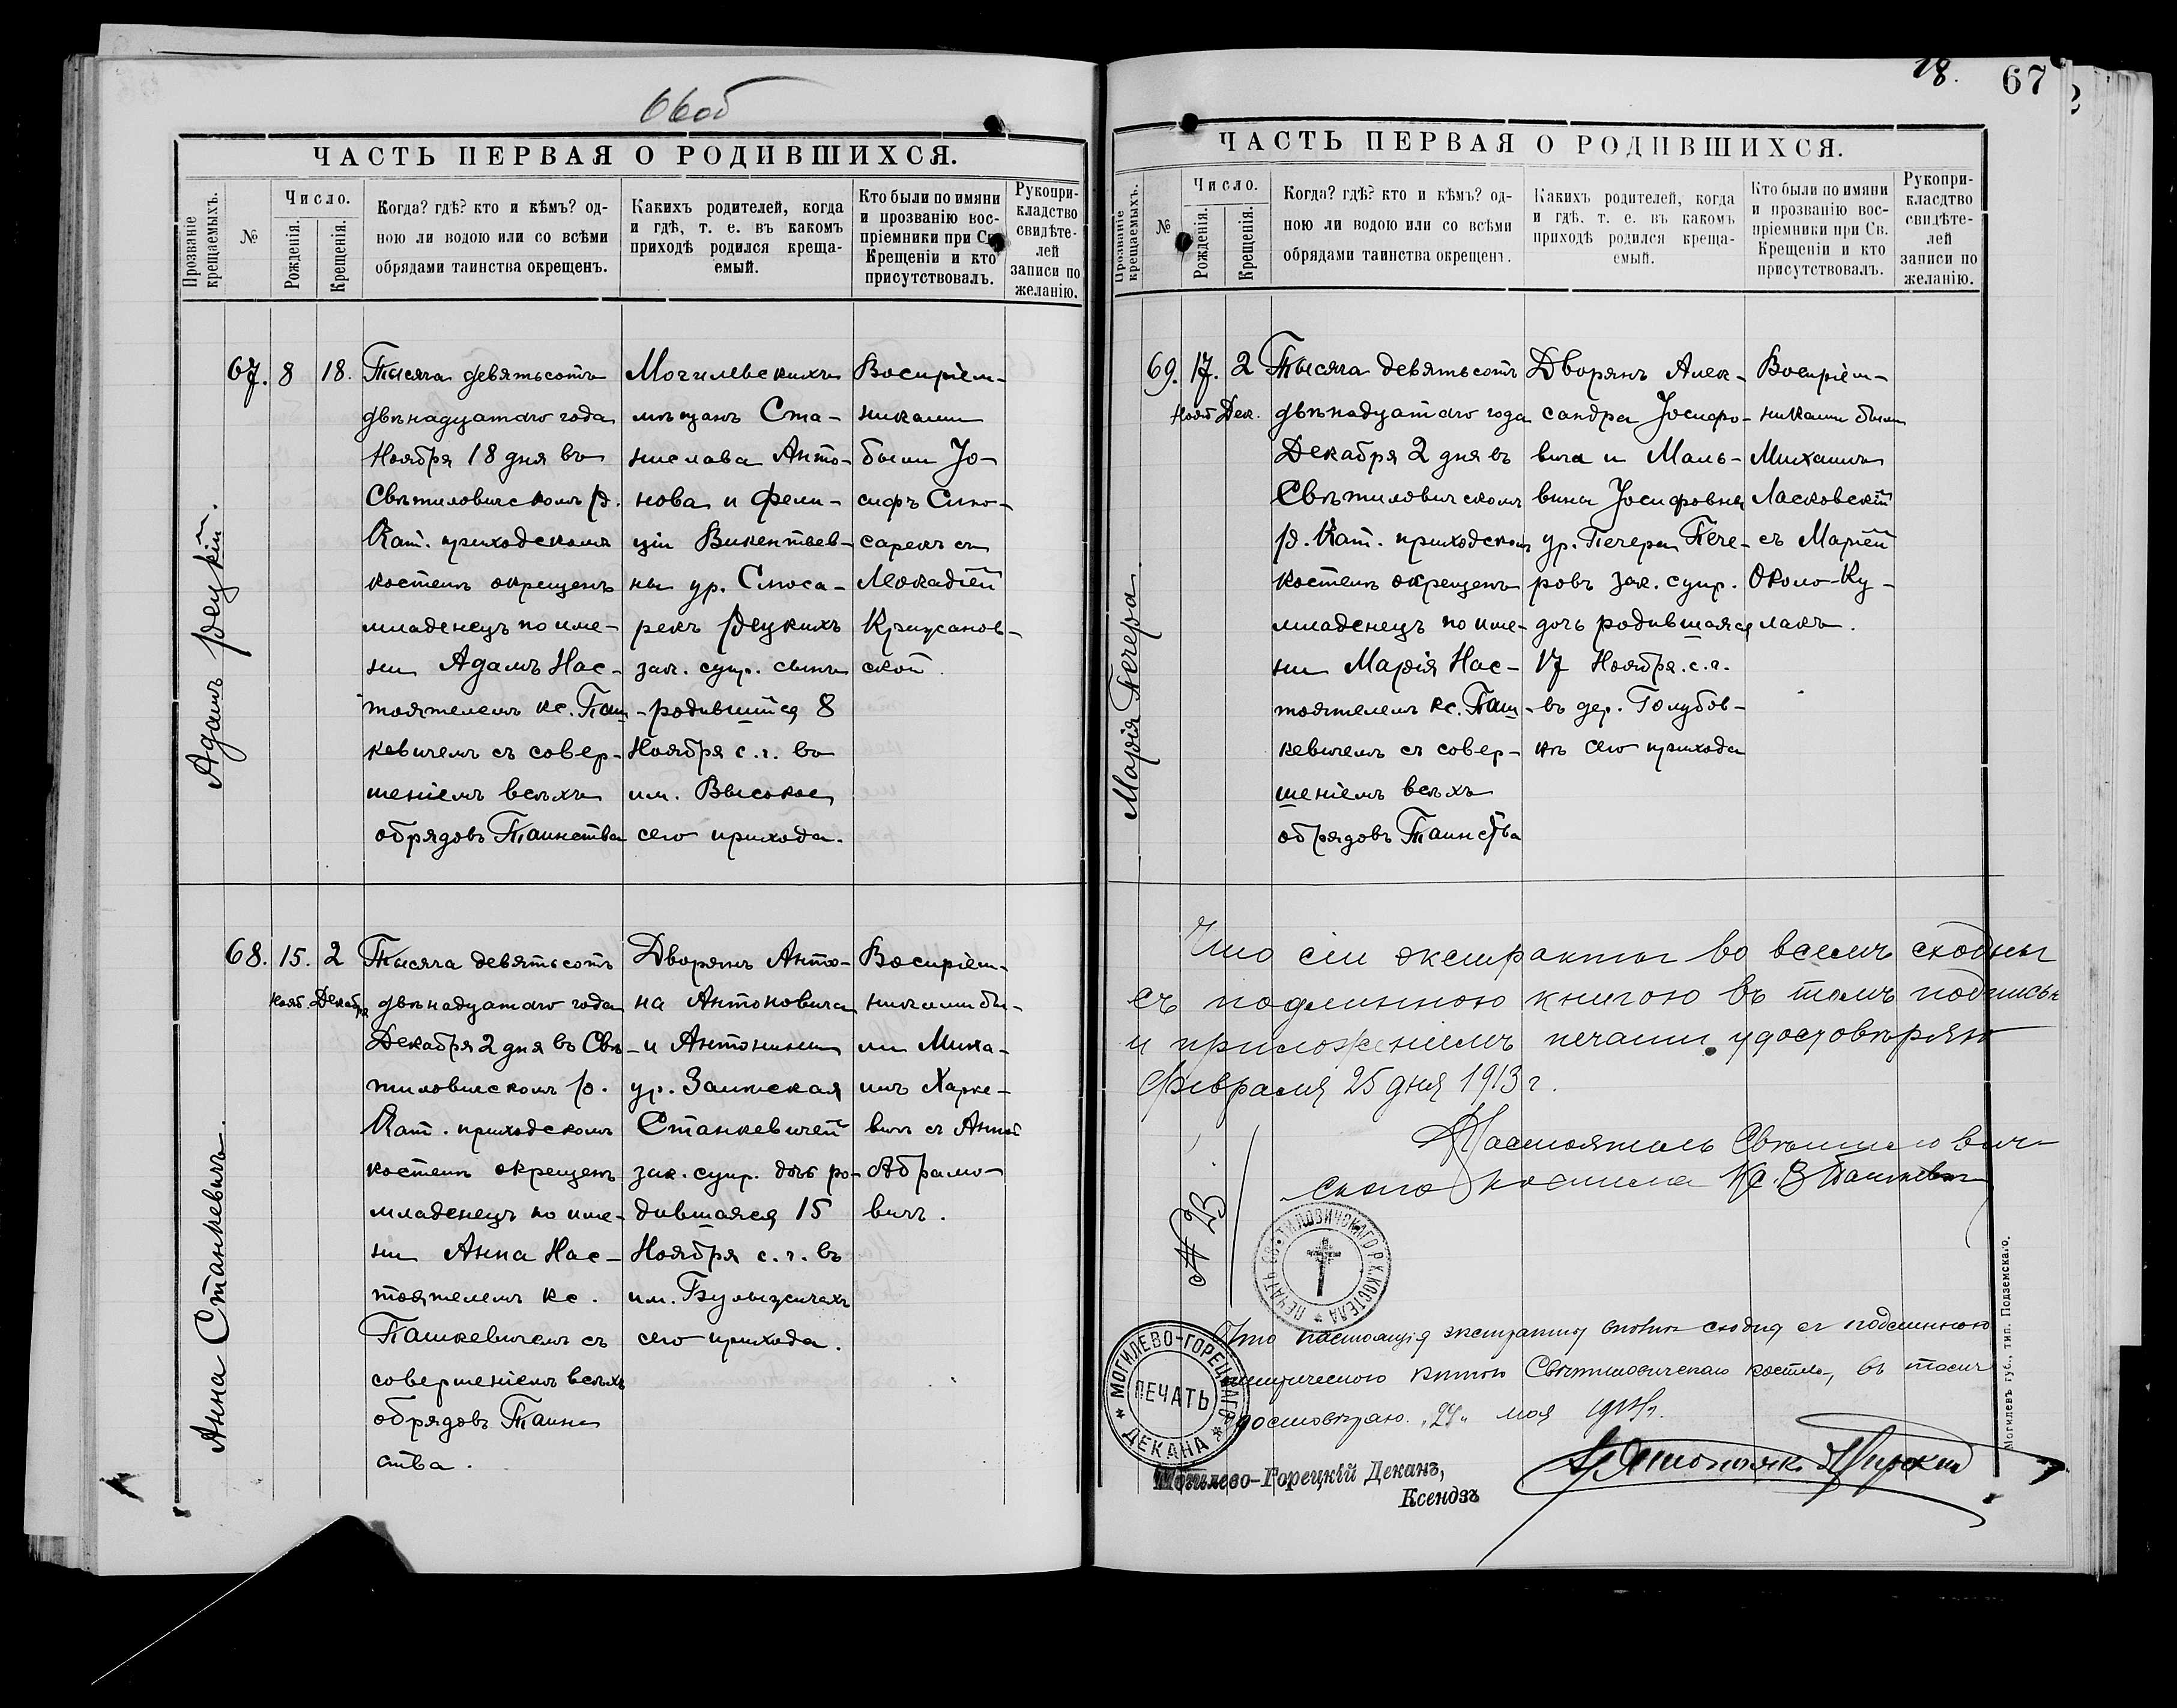 66об
ЧАСТЬ ПЕРВАЯ О РОДИВШИХСЯ.
Прозваніе крещаемыхъ.
№
Число.
Рожденія.
Крещенія.
Когда? гдѣ? кто и кѣмъ? од-
ною ли водою или со всѣми
обрядами таинства окрещенъ.
Какихъ родителей, когда
и гдѣ, т. е. въ какомъ
приходѣ родился креща-
емый.
Кто были по имяни
и прозванію вос-
пріемники при Св.
Крещеніи и кто
присутствовалъ.
Рукопри-
кладство
свидѣте-
лей
записи по
желанію.
Адамъ Рецкій.
67. 8 18.
Тысяча девятьсотъ
двѣнадцатаго года
Ноября 18 дня въ
Свѣтиловическомъ р.
Кат. приходскомъ
костелѣ окрещенъ
младенецъ по име-
ни Адамъ Нас-
тоятелемъ кс. Паш-
кевичемъ съ совер-
шеніемъ всѣхъ
обрядовъ Таинства
Могилевскихъ
мѣщанъ Ста-
нислава Анто-
нова и Фели-
ціи Викентьев-
ны ур. Слюса-
рекъ Рецкихъ
зак. супр. сынъ
родившійся 8
Ноября с. г. въ
им. Высокое
сего прихода.
Воспріем-
никами
были Іо-
сифъ Слю-
сарекъ съ
Леокадіей
Крижанов-
ской.
Анна Станкевичъ.
68. 15. 2
Нояб. Декабря
Тысяча девятьсотъ
двѣнадцатаго года
Декабря 2 дня въ Свѣ-
тиловическомъ р.
Кат. приходскомъ
костелѣ окрещенъ
младенецъ по име-
ни Анна Нас-
тоятелемъ кс.
Пашкевичемъ съ
совершеніемъ всѣхъ
обрядовъ Таин
ства.
Дворянъ Анто-
на Антоновича
и Антонины
ур. Заинская
Станкевичей
зак. супр. дочь ро-
дившаяся 15
Ноября с. г. въ
им. Булыжичахъ
сего прихода.
Воспріем-
никами бы-
ли Миха-
илъ Харке-
вичъ съ Анной
Абрамо-
вичъ.
18. 67
ЧАСТЬ ПЕРВАЯ О РОДИВШИХСЯ.
Прозваніе крещаемыхъ.
№
Число.
Рожденія.
Крещенія.
Когда? гдѣ? кто и кѣмъ? од-
ною ли водою или со всѣми
обрядами таинства окрещенъ.
Какихъ родителей, когда
и гдѣ, т. е. въ какомъ
приходѣ родился креща-
емый.
Кто были по имяни
и прозванію вос-
пріемники при Св.
Крещеніи и кто
присутствовалъ.
Рукопри-
класдтво
свидѣте-
лей
записи по
желанію.
Марія Печера.
69. 17. 2
Нояб Дек.
Тысяча девятьсотъ
двѣнадцатаго года
Декабря 2 дня въ
Свѣтиловическомъ
р. Кат. приходскомъ
костелѣ окрещенъ
младенецъ по име-
ни Марія Нас-
тоятелемъ кс. Паш-
кевичемъ съ совер-
шеніемъ всѣхъ
обрядовъ Таинства
Дворянъ Алек-
сандра Іосифо-
вича и Маль-
вины Іосифовны
ур. Печера Пече-
ровъ зак. супр.
дочь родившаяся
17 Ноября. с. г.
въ дер. Голубов-
кѣ сего прихода
Воспріем-
никами были
Михаилъ
Ласковскій
съ Маріей
Около-Ку-
лакъ.
Что сіи экстракты во всемъ сходны
съ подлинною книгою въ томъ подписью
и приложеніемъ печати удостовѣряю
Февраля 25 дня 1913 г.
Настоятель Свѣтилович-
скаго костела Кс. В Пашкевичъ
№ 23
ПЕЧАТЬ СВѢТИЛОВИЧСКАГО Р. К. КОСТЕЛА
Что настоящія экстракты вполнѣ сходны съ подлинною
метрическою книгою Свѣтиловическаго костела, въ томъ
удостовѣряю. „24„ мая
МОГИЛЕВО-ГОРЕЦКАГО
ПЕЧАТЬ
ДЕКАНА
Могилево-Горецкій Деканъ,
Ксендзъ
Могилевъ губ., тип. Подземскаго.